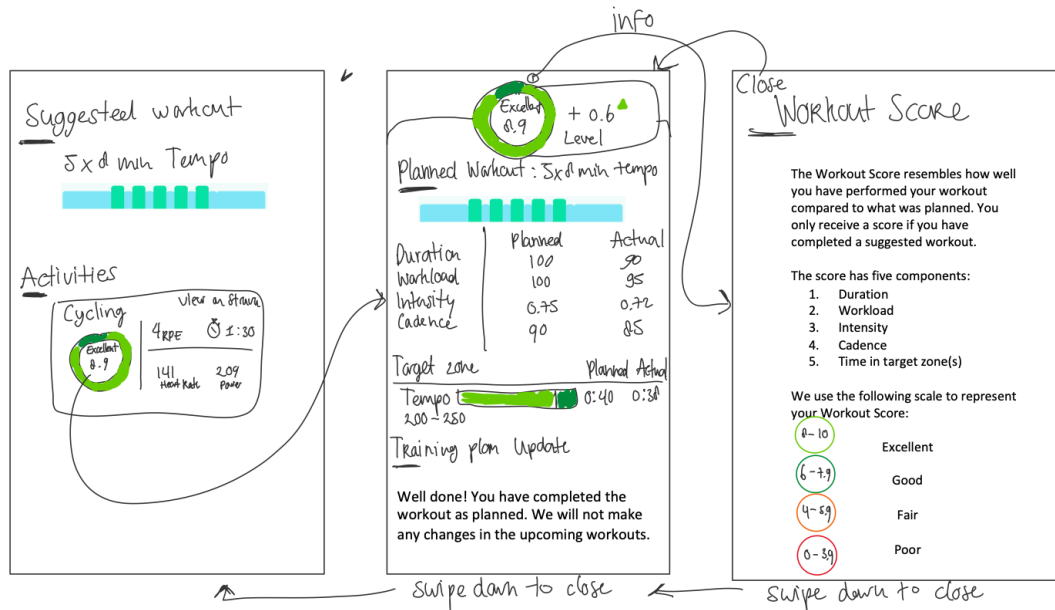 info
Suggested workout
5x8 min Tempo
Activities
Cycling
view on Strava
Excellent
8.9
4 RPE
1:30
141
Heart Rate
209
Power
Excellent
8.9
+ 0.6
Level
Planned Workout: 5x8 min tempo
Planned Actual
Duration 100 90
Workload 100 95
Intensity 0.75 0.72
Cadence 90 85
Target zone Planned Actual
Tempo 0:40 0:38
200-250
Training plan Update
Well done! You have completed the
workout as planned. We will not make
any changes in the upcoming workouts.
swipe down to close
Close
Workout Score
The Workout Score resembles how well
you have performed your workout
compared to what was planned. You
only receive a score if you have
completed a suggested workout.
The score has five components:
1. Duration
2. Workload
3. Intensity
4. Cadence
5. Time in target zone(s)
We use the following scale to represent
your Workout Score:
8-10 Excellent
6-7.9 Good
4-5.9 Fair
0-3.9 Poor
swipe down to close